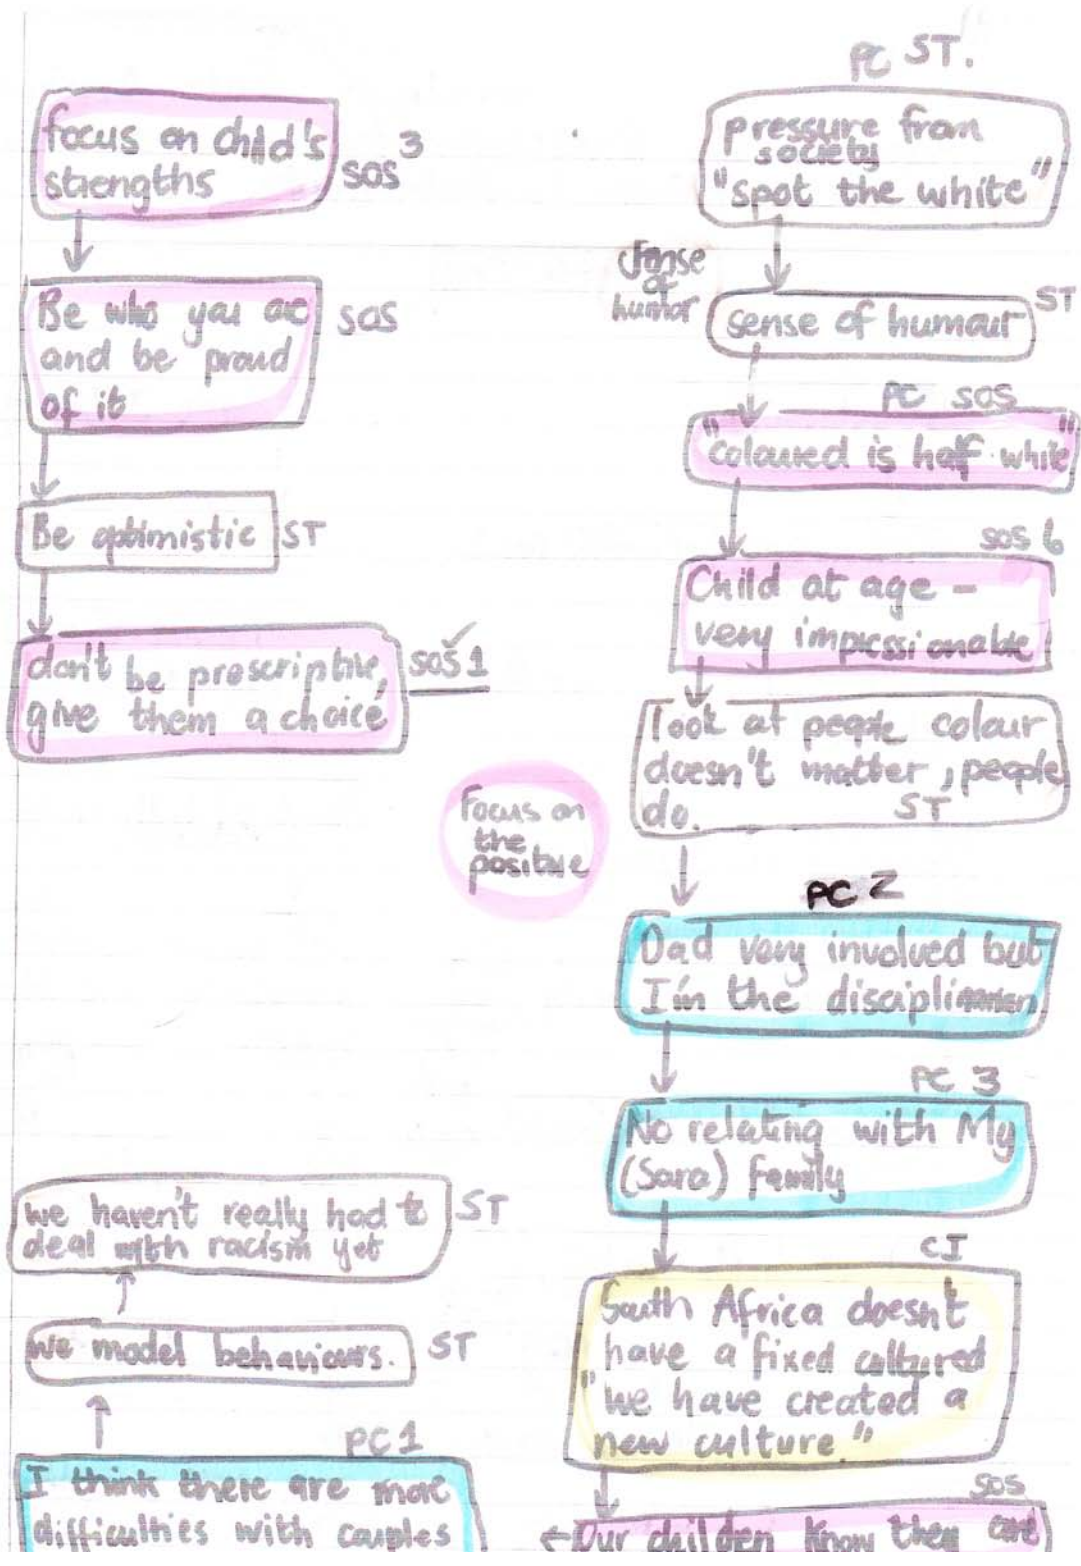 focus on child's
strengths
SOS 3
Be who you are
and be proud
of it
SOS
Be optimistic
ST
don't be prescriptive,
give them a choice
SOS 1
we haven't really had to
deal with racism yet
ST
we model behaviours.
ST
PC 1
I think there are more
difficulties with couples
Focus on
the
positive
PC ST.
pressure from
society
"spot the white"
sense
of
humor
sense of humour
ST
PC SOS
"coloured is half white"
SOS 6
Child at age -
very impressionable
look at people colour
doesn't matter, people
do.
ST
PC 2
Dad very involved but
I'm the disciplinarian
PC 3
No relating with My
(Sara) family
CI
South Africa doesn't
have a fixed cultured
"we have created a
new culture"
SOS
Our children know they are